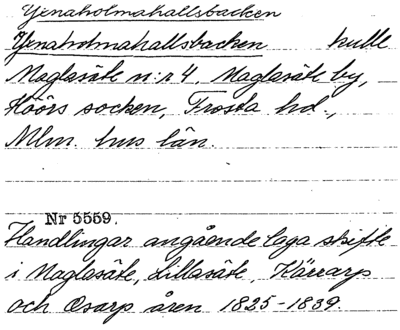 Yxnaholmahallsbacken
Yxnaholmahallsbacken kulle
Maglasäte n:r 4, Maglasäte by,
Höörs socken, Frosta hd.,
Mlm. hus län.
Nr 5559.
Handlingar angående laga skifte
i Maglasäte, Lillasäte, Kärrarp
och Osarp åren 1825-1839.